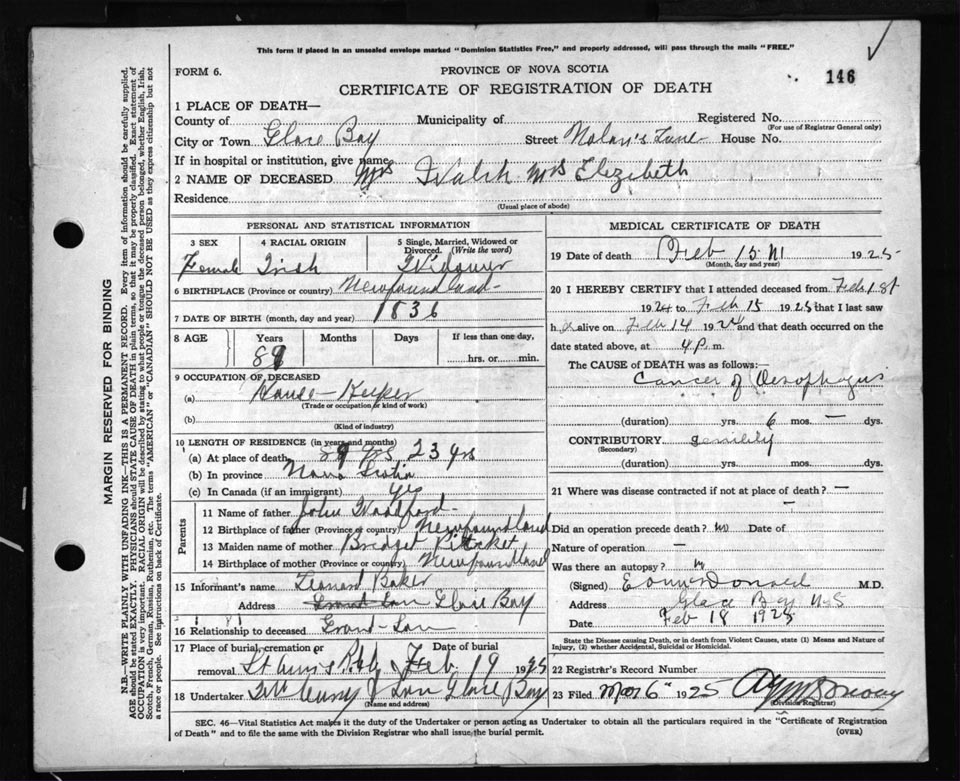 This form if placed in an unsealed envelope marked "Dominion Statistics Free," and properly addressed, will pass through the mails "FREE."
FORM 6.
PROVINCE OF NOVA SCOTIA
146
CERTIFICATE OF REGISTRATION OF DEATH
1 PLACE OF DEATH—
County of Municipality of Registered No.
(For use of Registrar General only)
City or Town Glace Bay Street Nolan's Lane House No.
If in hospital or institution, give name
2 NAME OF DECEASED Mrs Walsh Mrs Elezibeth
Residence
(Usual place of abode)
PERSONAL AND STATISTICAL INFORMATION
3 SEX 4 RACIAL ORIGIN 5 Single, Married, Widowed or Divorced. (Write the word)
Female Irish Widower
6 BIRTHPLACE (Province or country) Newfoundland
7 DATE OF BIRTH (month, day and year) 1836
8 AGE Years Months Days If less than one day,
89 hrs. or min.
9 OCCUPATION OF DECEASED
(a) House-Keeper
(Trade or occupation or kind of work)
(b)
(Kind of industry)
10 LENGTH OF RESIDENCE (in years and months)
(a) At place of death 23 yrs
(b) In province Nova Scotia
(c) In Canada (if an immigrant) yes
Parents
11 Name of father John Woodford
12 Birthplace of father (Province or country) Newfoundland
13 Maiden name of mother Bridget
14 Birthplace of mother (Province or country) Newfoundland
15 Informant's name Leonard Baker
Address Grand-Son Glace Bay
16 Relationship to deceased Grand-Son
17 Place of burial, cremation or removal Date of burial
St Anns Feb 19 1925
18 Undertaker & Son Glace Bay
(Name and address)
MEDICAL CERTIFICATE OF DEATH
19 Date of death Feb 15 1925
(Month, day and year)
20 I HEREBY CERTIFY that I attended deceased from Feb 1st
1924 to Feb 15 1925 that I last saw
her alive on Feb 14 1924 and that death occurred on the
date stated above, at 4 p m.
The CAUSE of DEATH was as follows:—
Cancer of Oesophagus
(duration) yrs. 6 mos. — dys.
CONTRIBUTORY senility
(Secondary)
(duration) yrs. mos. dys.
21 Where was disease contracted if not at place of death? —
Did an operation precede death? no Date of
Nature of operation —
Was there an autopsy? no
(Signed) M.D.
Address Glace Bay N-S
Date Feb 18 1925
State the Disease causing Death, or in death from Violent Causes, state (1) Means and Nature of Injury, (2) whether Accidental, Suicidal or Homicidal.
22 Registrar's Record Number
23 Filed Mar 6" 1925
(Division Registrar)
SEC. 46—Vital Statistics Act makes it the duty of the Undertaker or person acting as Undertaker to obtain all the particulars required in the "Certificate of Registration
of Death" and to file the same with the Division Registrar who shall issue the burial permit.
(OVER)
MARGIN RESERVED FOR BINDING
N.B.—WRITE PLAINLY WITH UNFADING INK—THIS IS A PERMANENT RECORD. Every item of information should be carefully supplied.
AGE should be stated EXACTLY. PHYSICIANS should STATE CAUSE OF DEATH in plain terms, so that it may be properly classified. Exact statement of
OCCUPATION is very important. RACIAL ORIGIN will be described by stating to what people or tongue the deceased person belonged, whether English, Irish,
Scotch, French, German, Russian, Ruthenian, etc. The terms "AMERICAN" or "CANADIAN" SHOULD NOT BE USED as they express citizenship but not
a race or people. See instructions on back of Certificate.